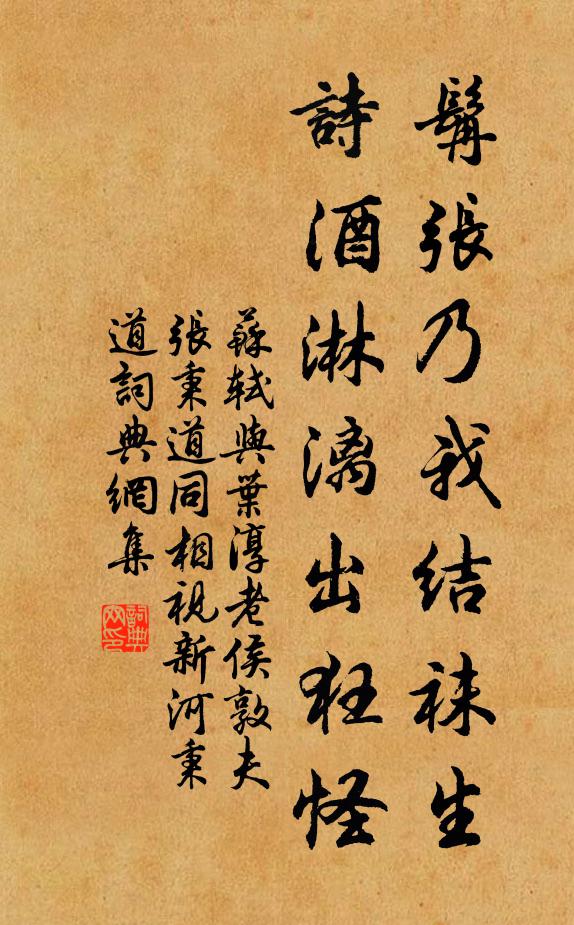 髯張乃我結袜生
詩酒淋漓出狂怪
蘇軾與葉淳老侯敦夫
張秉道同相視新河秉
道詞典網集
詞典網印